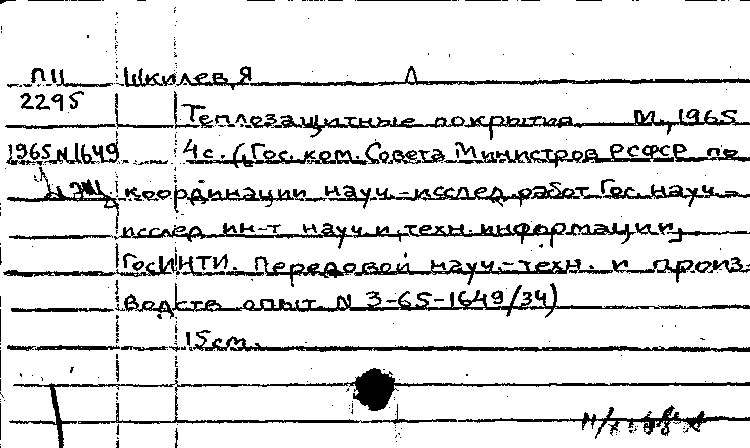 ПЦ Шкилев, Я Л
2295 Теплозащитные покрытия М., 1965
1965 N 1649 4с. (Гос. ком. Совета Министров РСФСР по
координации науч.-исслед. работ Гос. науч.-
исслед ин-т науч. и техн. информации,
ГосИНТИ. Передовой науч.-техн. и произ-
водств опыт. N 3-65-1649/34)
15 см.